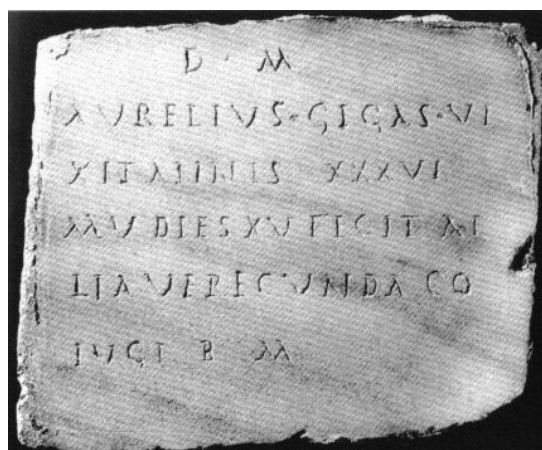 D · M
AURELIUS · GIGAS · VI
XIT ANNIS XXXVI
M V DIES XV FICIT AE
LIA VERECUNDA CO
IUGI B M